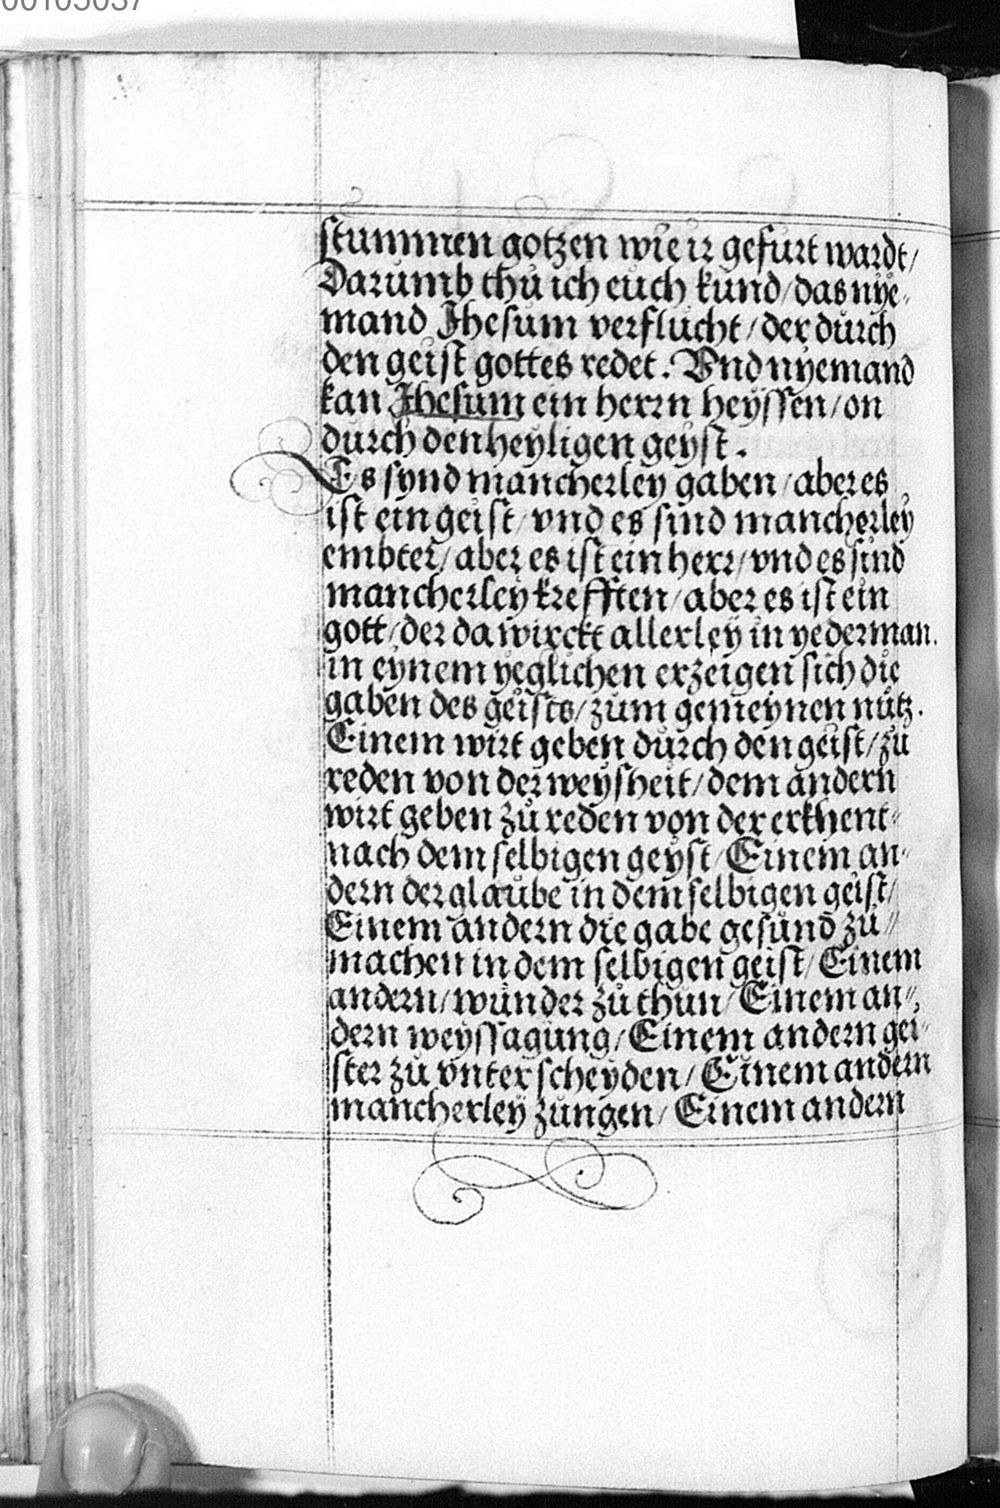 00105037
stummen gotzen wie ir gefurt wardt/
Darumb thů ich euch kůnd/das nye-
mand Jhesum verflůcht/der důrch
den geist gottes redet. Vnd nyemand
kan Jhesum ein herrn heyssen/on
důrch den heyligen geyst.
Es synd mancherley gaben/aber es
ist ein geist/vnd es sind mancherley
embter/aber es ist ein herr/vnd es sind
mancherley krefften/aber es ist ein
gott/der da wirckt allerley in yederman.
in eynem yeglichen erzeigen sich die
gaben des geists/zům gemeynen nůtz.
Einem wirt geben důrch den geist/zů
reden von der weysheit/dem andern
wirt geben zů reden von der erkhent-
nach dem selbigen geyst/Einem an-
dern der glaůbe in dem selbigen geist/
Einem andern die gabe gesůnd zů-
machen in dem selbigen geist/Einem
andern/wůnder zů thůn/Einem an-
dern weyssagůng/Einem andern gei-
ster zů vnterscheyden/Einem andern
mancherley zůngen/Einem andern